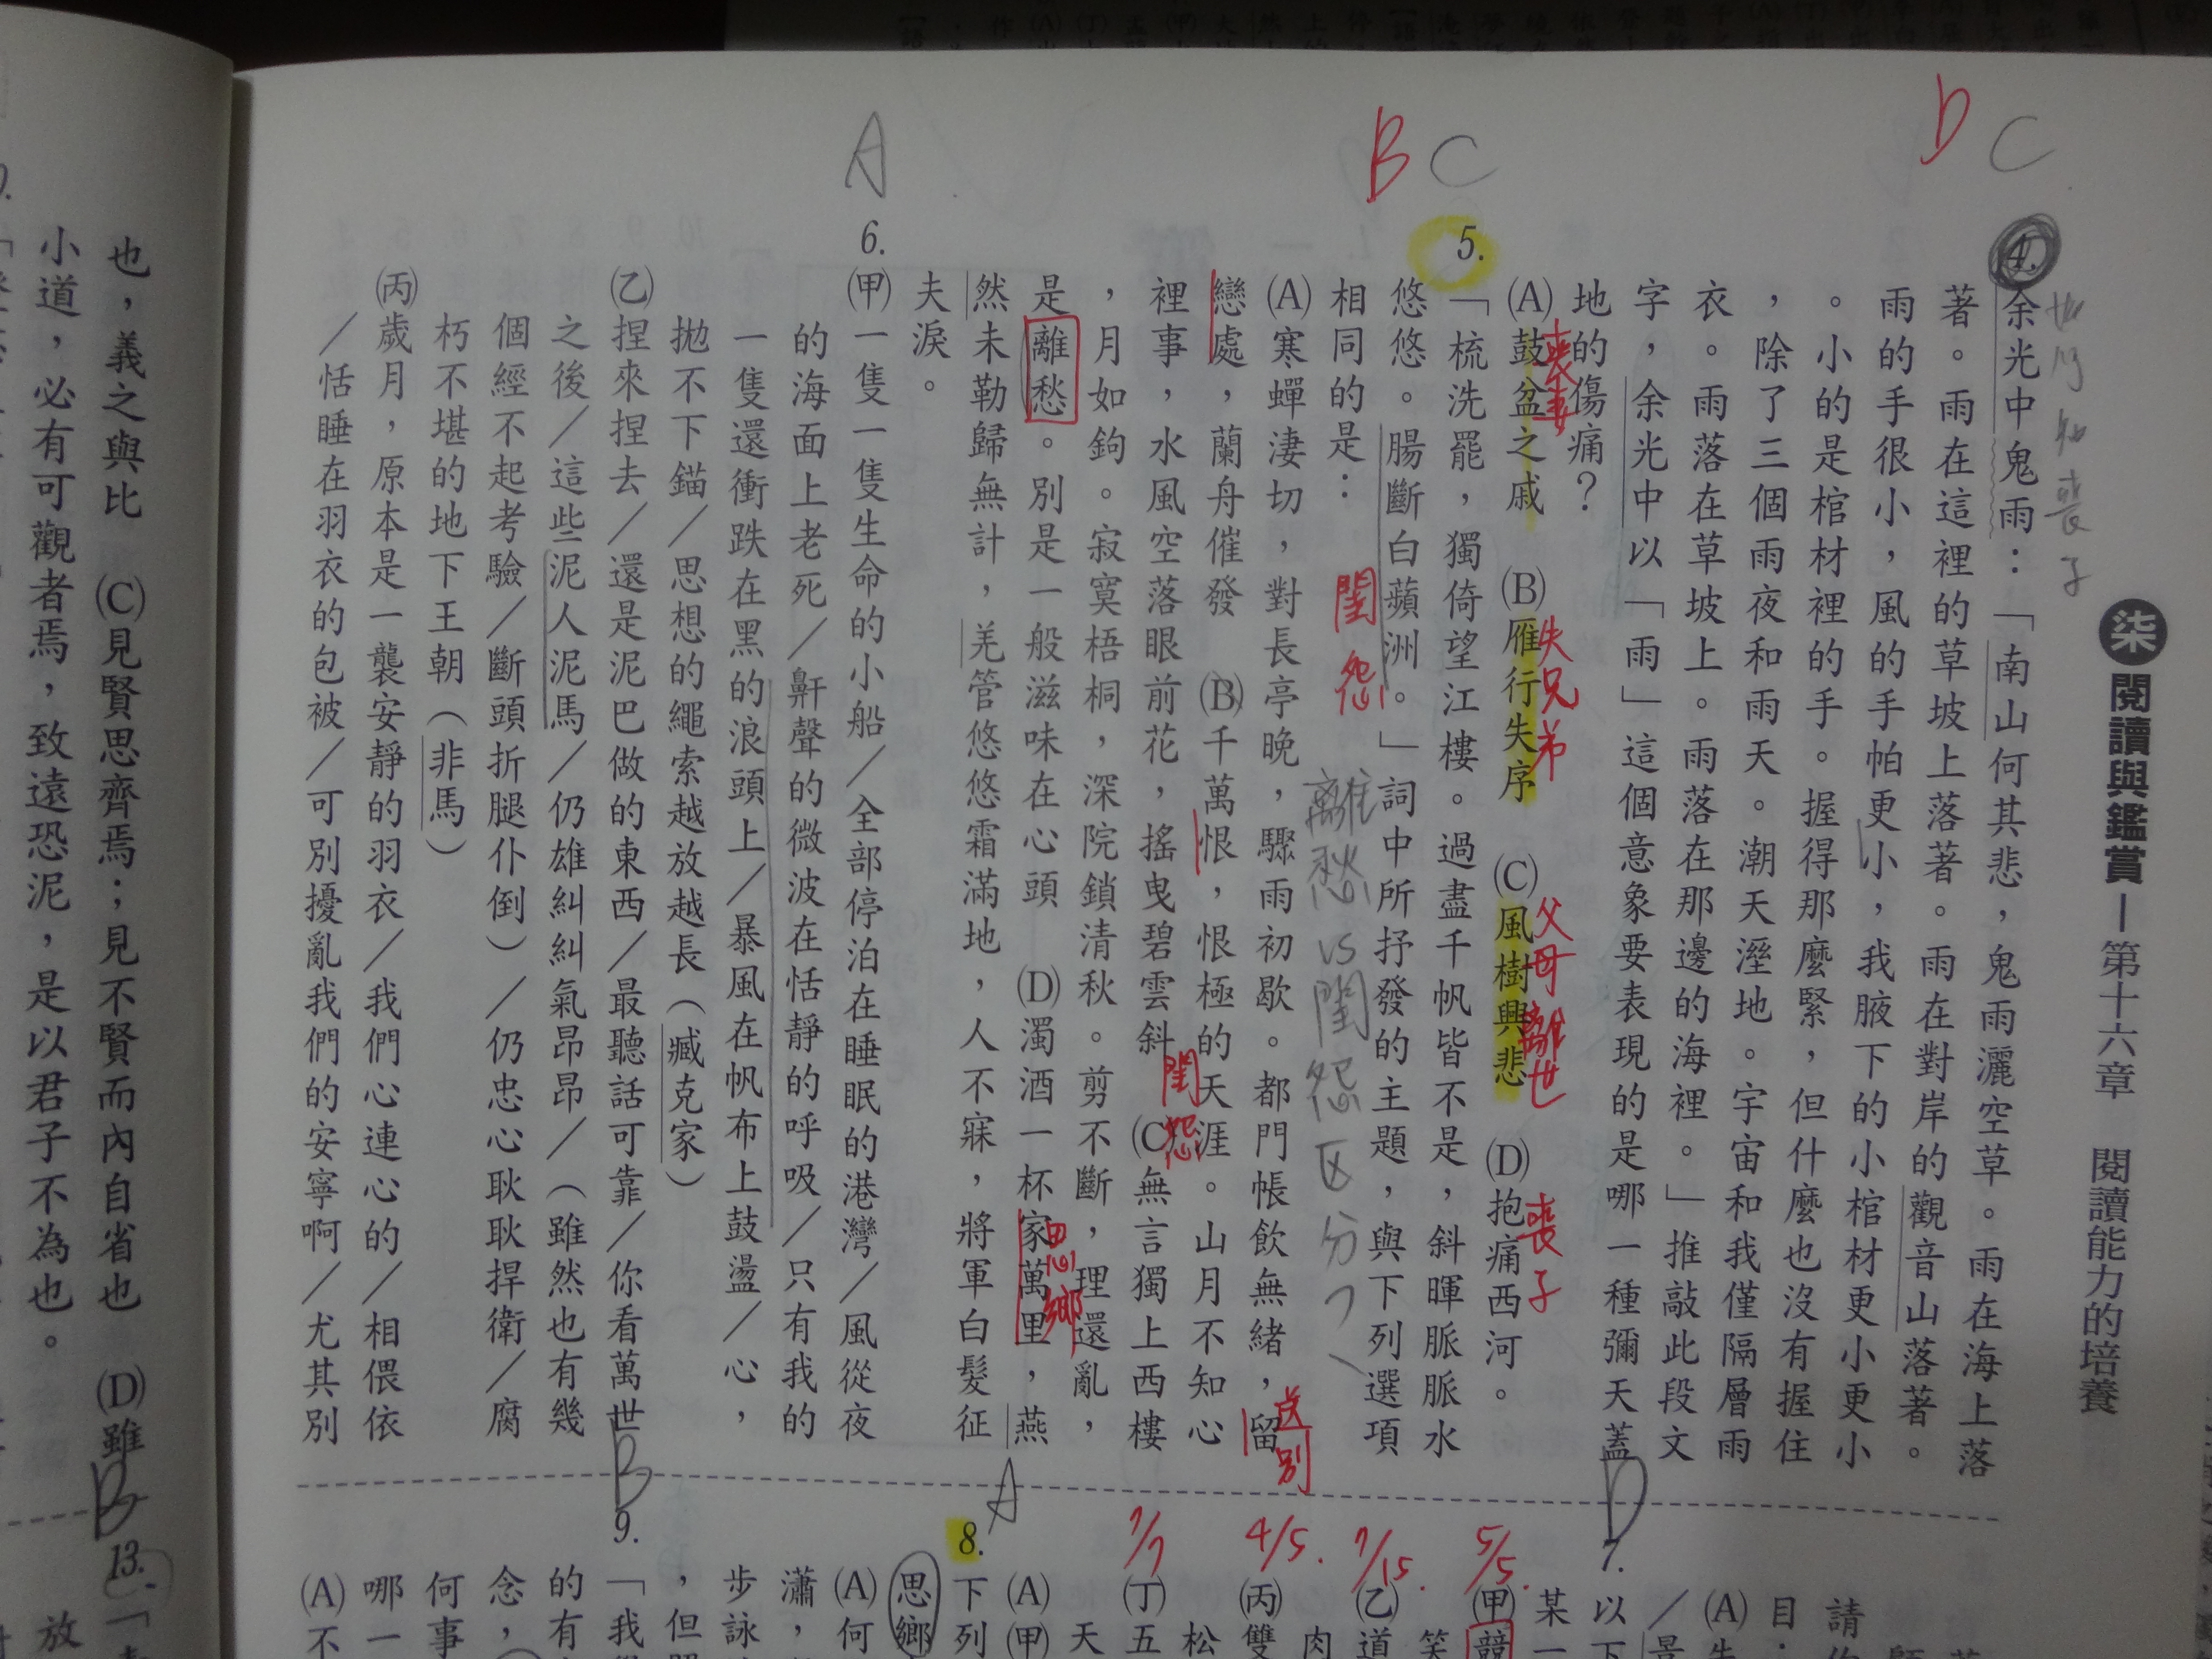 柒閱讀與鑑賞—第十六章 閱讀能力的培養
D C
4.
余光中鬼雨：「南山何其悲，鬼雨灑空草。雨在海上落
著。雨在這裡的草坡上落著。雨在對岸的觀音山落著。
雨的手很小，風的手帕更小，我腋下的小棺材更小更小
。小的是棺材裡的手。握得那麼緊，但什麼也沒有握住
，除了三個雨夜和雨天。潮天溼地。宇宙和我僅隔層雨
衣。雨落在草坡上。雨落在那邊的海裡。」推敲此段文
字，余光中以「雨」這個意象要表現的是哪一種彌天蓋
地的傷痛？
(A)鼓盆之戚 (B)雁行失序 (C)風樹興悲 (D)抱痛西河。
喪妻 失兄弟 父母離世 喪子
B C
5.
「梳洗罷，獨倚望江樓。過盡千帆皆不是，斜暉脈脈水
悠悠。腸斷白蘋洲。」詞中所抒發的主題，與下列選項
閨怨
相同的是：
離愁 vs 閨怨 区分？
(A)寒蟬淒切，對長亭晚，驟雨初歇。都門帳飲無緒，留
送別
戀處，蘭舟催發 (B)千萬恨，恨極的天涯。山月不知心
裡事，水風空落眼前花，搖曳碧雲斜 (C)無言獨上西樓
閨怨
，月如鉤。寂寞梧桐，深院鎖清秋。剪不斷，理還亂，
是離愁。別是一般滋味在心頭 (D)濁酒一杯家萬里，燕
思鄉
然未勒歸無計，羌管悠悠霜滿地，人不寐，將軍白髮征
夫淚。
A
6.
(甲)一隻一隻生命的小船／全部停泊在睡眠的港灣／風從夜
的海面上老死／鼾聲的微波在恬靜的呼吸／只有我的
一隻還衝跌在黑的浪頭上／暴風在帆布上鼓盪／心，
拋不下錨／思想的繩索越放越長（臧克家）
(乙)捏來捏去／還是泥巴做的東西／最聽話可靠／你看萬世
之後／這些泥人泥馬／仍雄糾糾氣昂昂／（雖然也有幾
個經不起考驗／斷頭折腿仆倒）／仍忠心耿耿捍衛／腐
朽不堪的地下王朝（非馬）
(丙)歲月，原本是一襲安靜的羽衣／我們心連心的／相偎依
／恬睡在羽衣的包被／可別擾亂我們的安寧啊／尤其別
也，義之與比 (C)見賢思齊焉；見不賢而內自省也 (D)雖
小道，必有可觀者焉，致遠恐泥，是以君子不為也。
D
7.
以下
某一
5/5.
(甲)
7/15.
(乙)道
4/5.
(丙)雙
松
7/7
(丁)五
天
(A)(甲)
A
8.
下列
思鄉
(A)何
瀟，
步詠
，但
B
9.
「我
的有
念，
何事
哪一
(A)不
B
13.
放